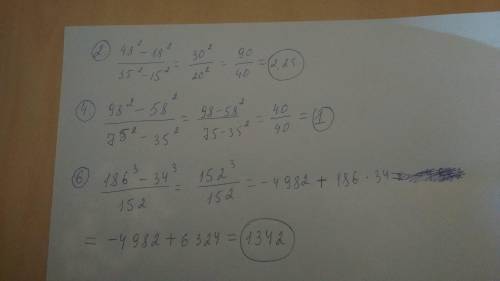 ② (48² − 18²)/(35² − 15²) = 30²/20² = 90/40 = 2,25
④ (98² − 58²)/(75² − 35²) = (98 − 58²)/(75 − 35²) = 40/40 = 1
⑥ (186³ − 34³)/152 = 152³/152 = −4982 + 186 · 34 =
= −4982 + 6324 = 1342